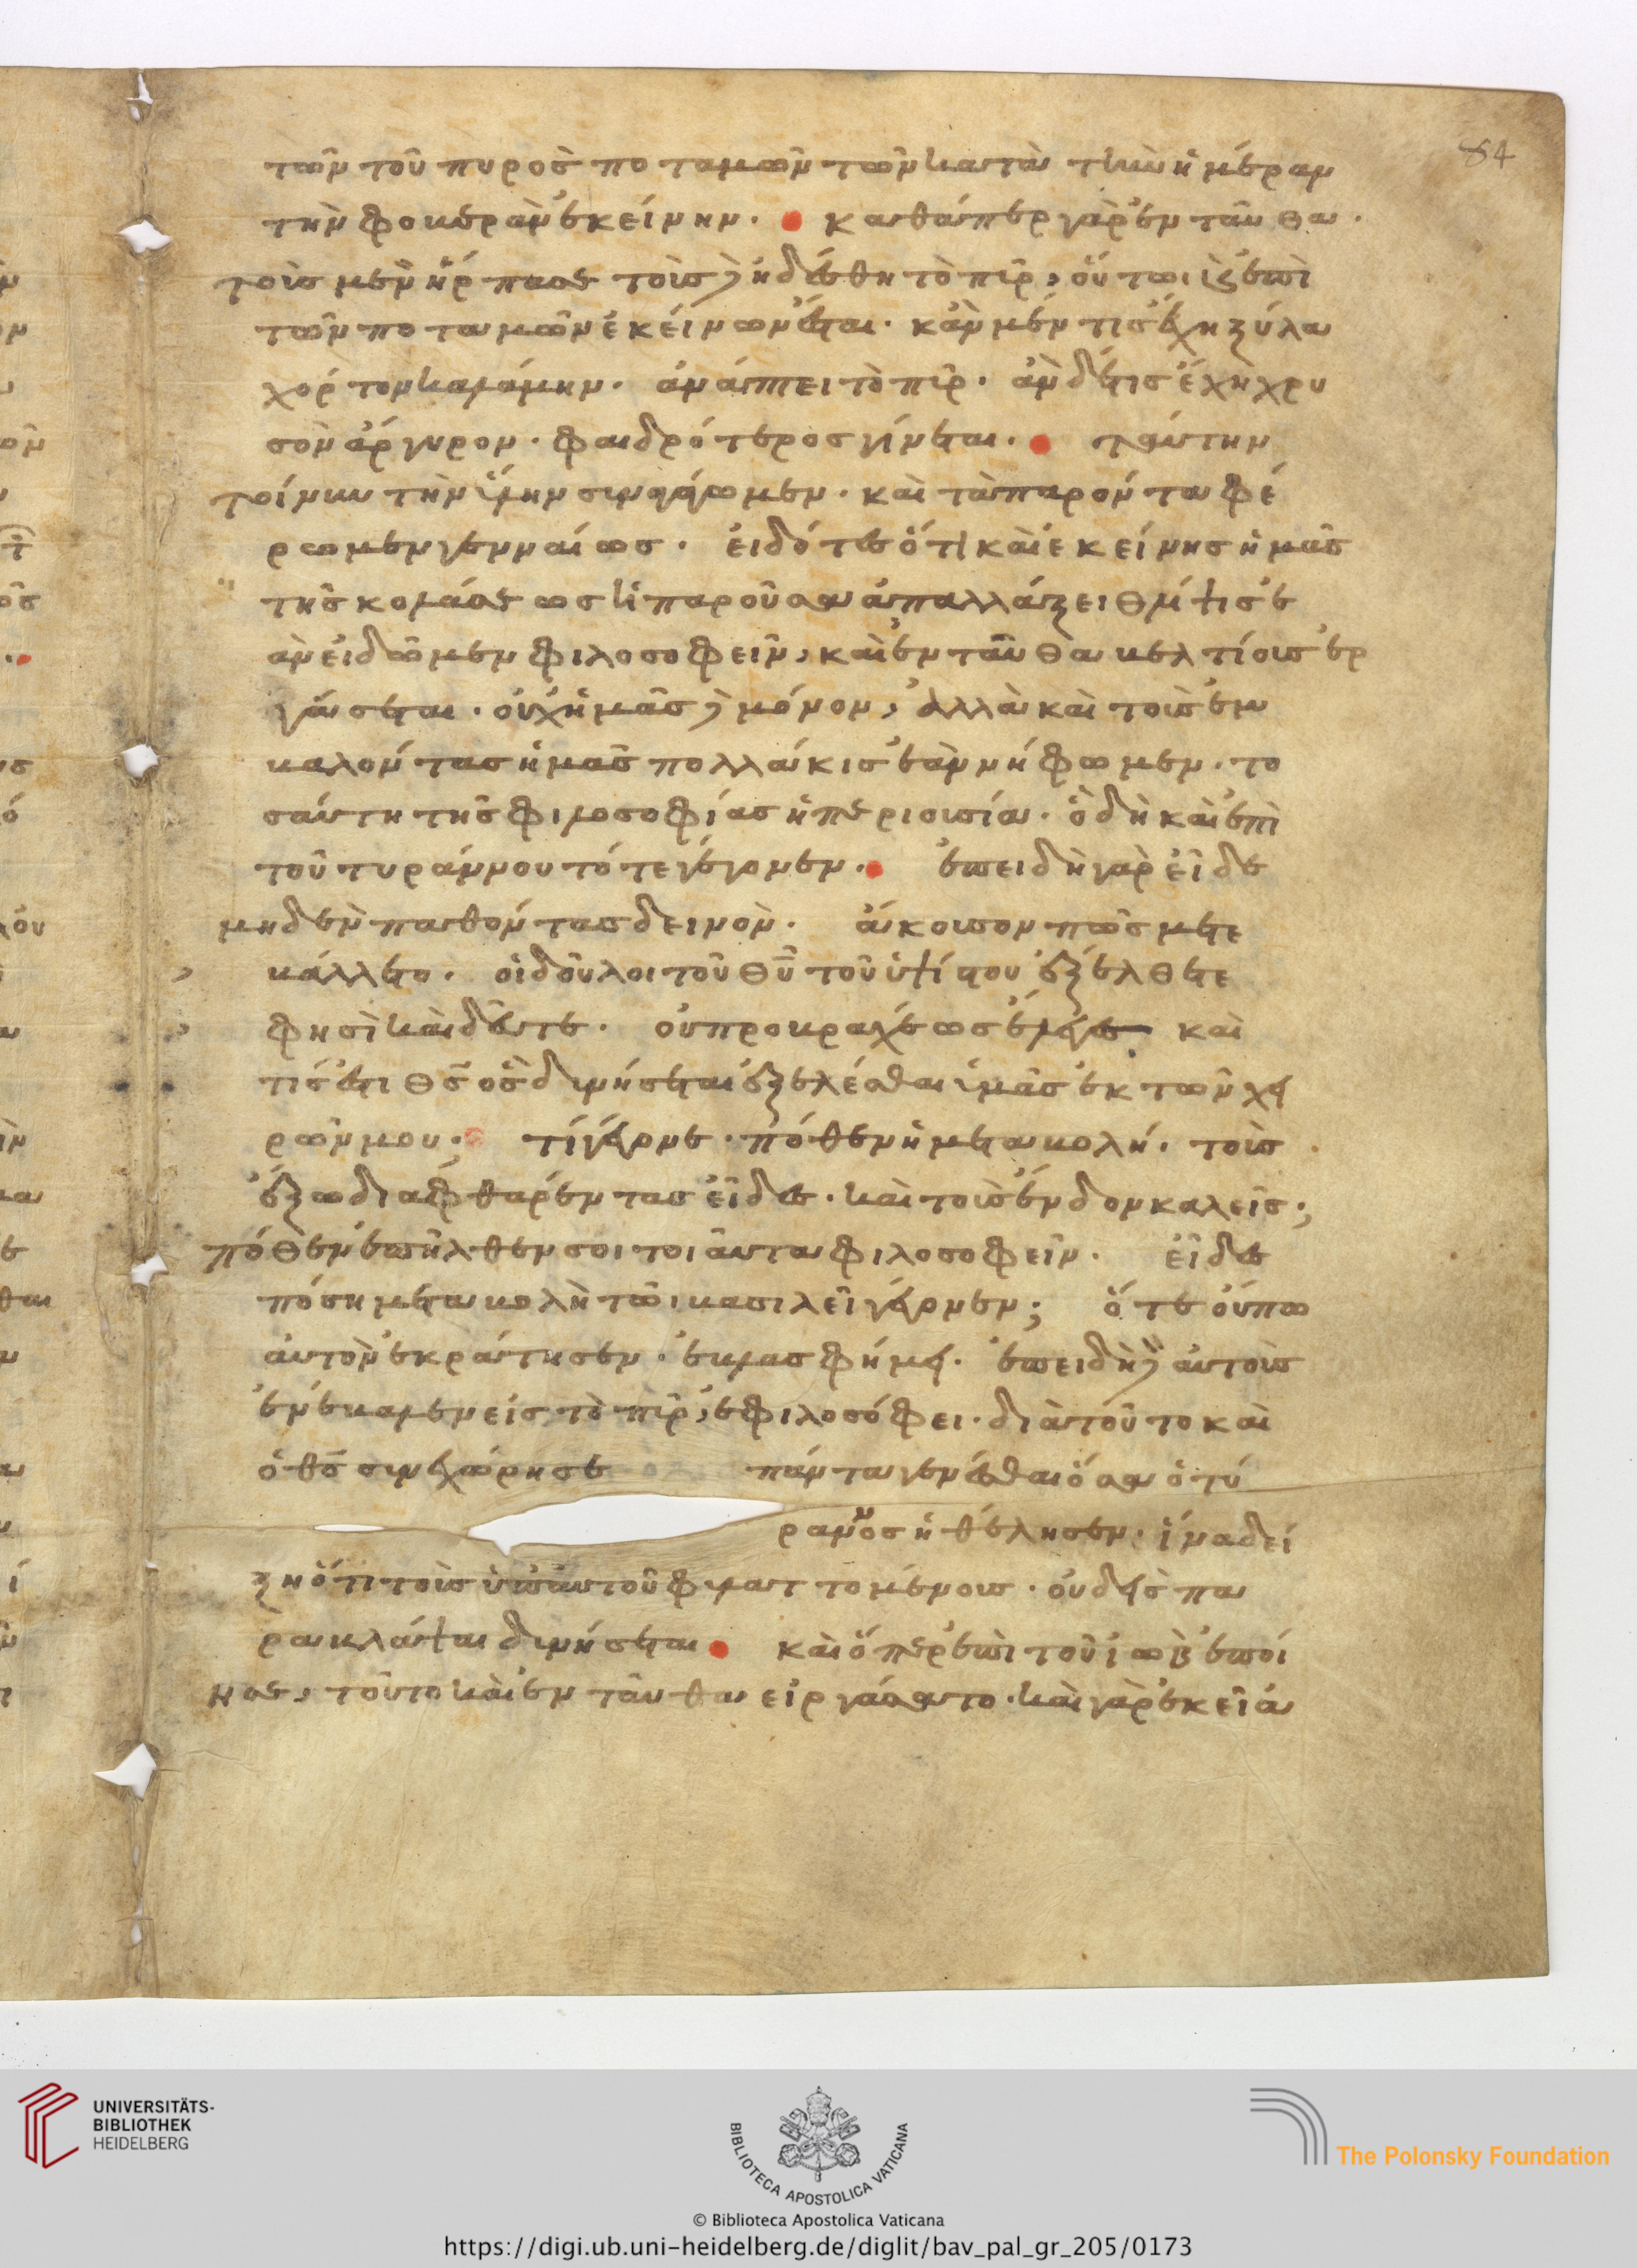 84
τῶν τοῦ πυρὸς ποταμῶν τῶν κατὰ τὴν ἡμέραν
τὴν φοβερὰν ἐκείνην. καθάπερ γὰρ ἐνταῦθα
τοὺς μὲν ἥρπασε τοὺς δὲ ἠδέσθη τὸ πῦρ, οὕτω καὶ ἐπὶ
τῶν ποταμῶν ἐκείνων ἔσται. κἂν μέν τις ἔχῃ ξύλα
χόρτον καλάμην. ἀνάπτει τὸ πῦρ. ἂν δέ τις ἔχῃ χρυ
σὸν ἄργυρον. φαιδρότερος γίνεται. ταύτην
τοίνυν τὴν ὕλην συνάγωμεν. καὶ τὰ παρόντα φέ
ρωμεν γενναίως. εἰδότες ὅτι καὶ ἐκείνης ἡμᾶς
τῆς κολάσεως ἡ παροῦσα ἀπαλλάξει θλίψις
ἂν εἰδῶμεν φιλοσοφεῖν, καὶ ἐνταῦθα βελτίους ἐρ
γάσεται. οὐχ ἡμᾶς δὲ μόνον, ἀλλὰ καὶ τοὺς ἐμ
βαλόντας ἡμᾶς πολλάκις ἐὰν νήφωμεν. το
σαύτη τῆς φιλοσοφίας ἡ περιουσία. ὃ δὴ καὶ ἐπὶ
τοῦ τυράννου τότε γέγονεν. ἐπειδὴ γὰρ εἶδε
μηδὲν παθόντας δεινὸν. ἄκουσον πῶς μετε
βάλλετο. οἱ δοῦλοι τοῦ θῦ τοῦ ὑψίστου ἐξέλθετε
φησὶ καὶ δεῦτε. οὐ πρὸ βραχέως ἔλεγες καὶ
τίς ἐστι θς ὃς δυνήσεται ἐξελέσθαι ὑμᾶς ἐκ τῶν χει
ρῶν μου. τί γέγονε. πόθεν ἡ μεταβολή. τοὺς
ἔξω διαφθαρέντας εἶδες. καὶ τοὺς ἔνδον καλεῖς;
πόθεν ἐπῆλθεν σοι τοιαῦτα φιλοσοφεῖν. εἶδες
πόση μεταβολὴ τῶι βασιλεῖ γέγονεν; ὅτε οὔπω
αὐτὸν ἐκράτησεν. ἐβλασφήμει. ἐπειδὴ δὲ αὐτοὺς
ἐνέβαλεν εἰς τὸ πῦρ, ἐφιλοσόφει. διὰ τοῦτο καὶ
ὁ θς συνεχώρησε πάντα γενέσθαι ὅσα ὁ τύ
ραννος ἠθέλησεν. ἵνα δεί
ξῃ ὅτι τοὺς ὑπ' αὐτοῦ φυλαττομένους. οὐδεὶς πα
ραβλάψαι δυνήσεται καὶ ὅπερ ἐπὶ τοῦ ἰὼβ ἐποί
ησε, τοῦτο καὶ ἐνταῦθα εἰργάσατο. καὶ γὰρ ἐκεῖ ἀ
UNIVERSITÄTS-
BIBLIOTHEK
HEIDELBERG
BIBLIOTECA APOSTOLICA VATICANA
The Polonsky Foundation
© Biblioteca Apostolica Vaticana
https://digi.ub.uni-heidelberg.de/diglit/bav_pal_gr_205/0173